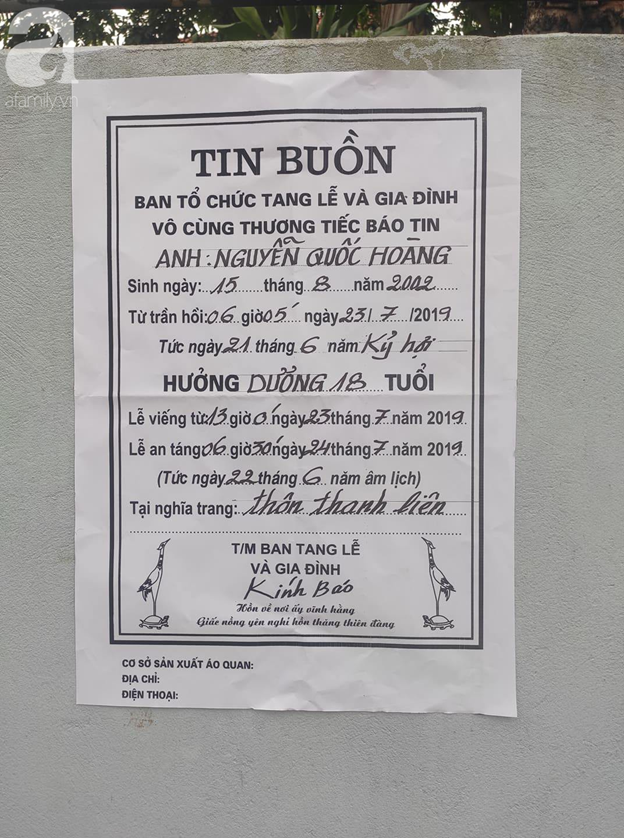 afamily.vn
TIN BUỒN
BAN TỔ CHỨC TANG LỄ VÀ GIA ĐÌNH
VÔ CÙNG THƯƠNG TIẾC BÁO TIN
ANH: NGUYỄN QUỐC HOÀNG
Sinh ngày: 15 tháng 8 năm 2002
Từ trần hồi: 06 giờ 05' ngày 23/7/2019
Tức ngày 21 tháng 6 năm Kỷ hợi
HƯỞNG DƯƠNG 18 TUỔI
Lễ viếng từ: 13 giờ 0' ngày 23 tháng 7 năm 2019
Lễ an táng 06 giờ 30' ngày 24 tháng 7 năm 2019
(Tức ngày 22 tháng 6 năm âm lịch)
Tại nghĩa trang: thôn thanh liên
T/M BAN TANG LỄ
VÀ GIA ĐÌNH
Kính Báo
Hồn về nơi ấy vĩnh hằng
Giấc nồng yên nghỉ hồn thăng thiên đàng
CƠ SỞ SẢN XUẤT ÁO QUAN:
ĐỊA CHỈ:
ĐIỆN THOẠI: